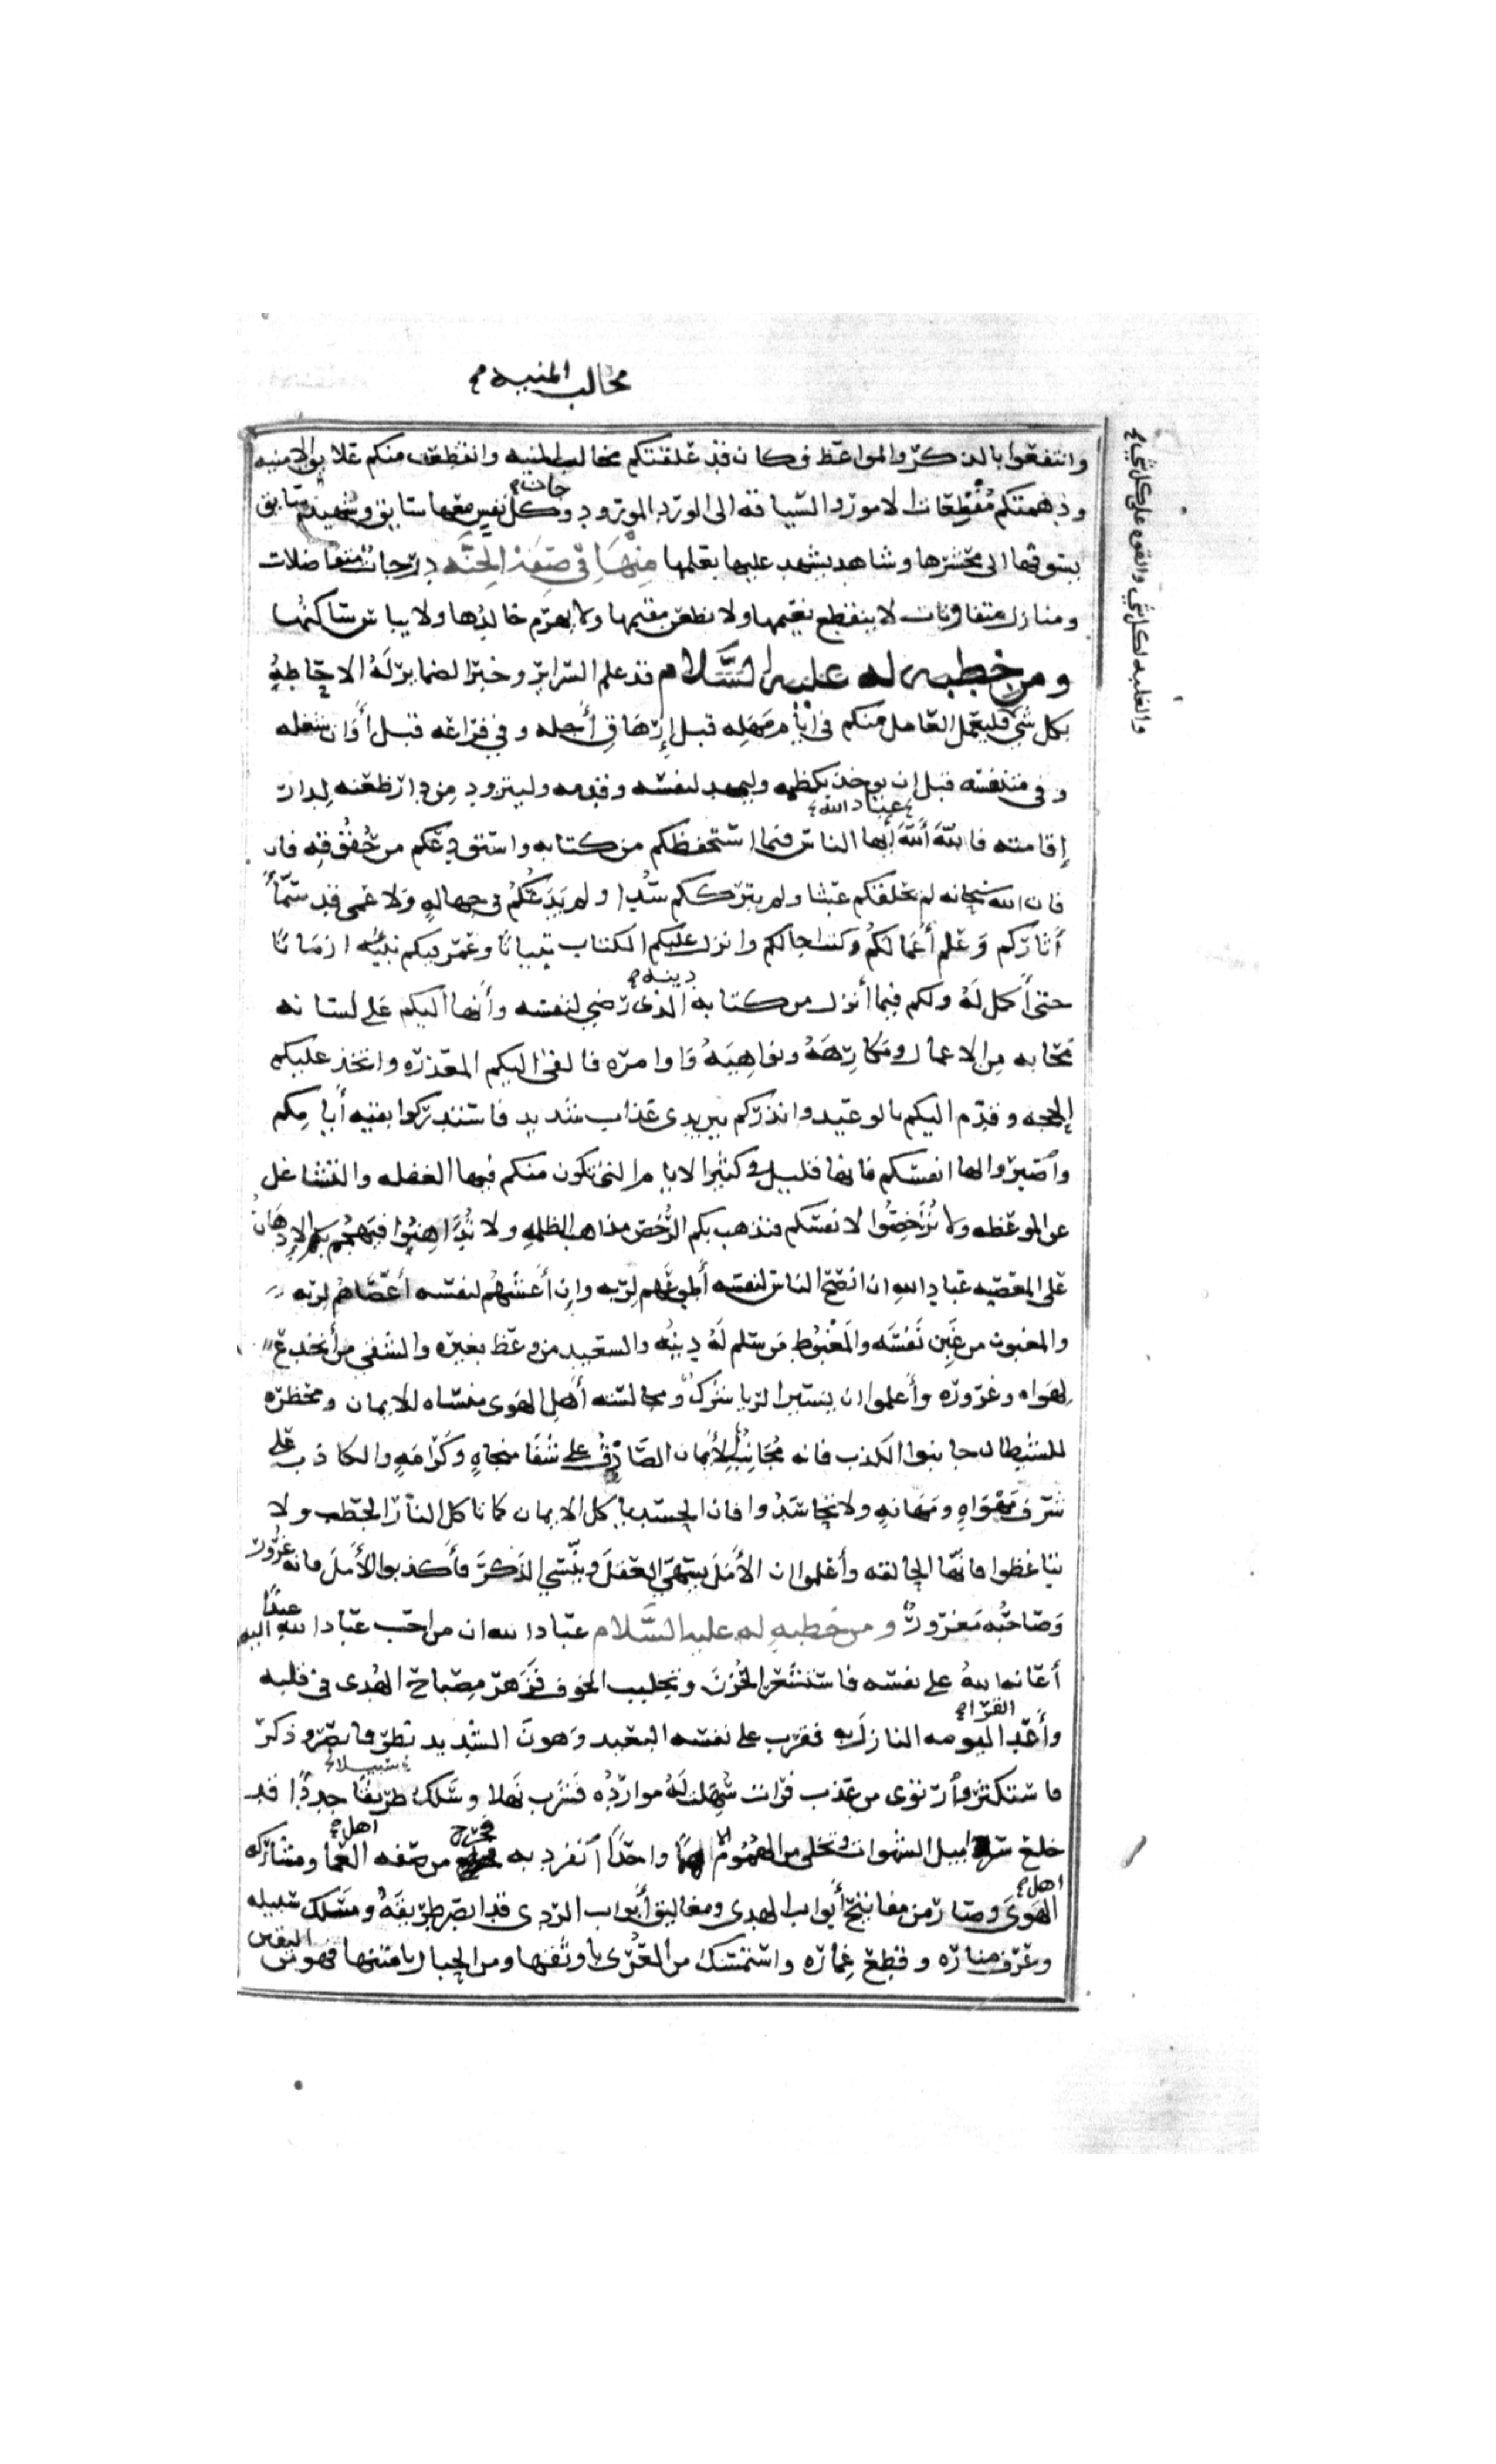 مخالب المنيه
وانتفعوا بالذكر والمواعظ فكان قد علقتكم مخالب المنيه وانقطعت منكم علايق الامنيه
ودهمتكم مفظعات الامور والسياقه الى الورد المورود وكل نفس جات معها سايق وشهيد سايق
يسوقها الى محشرها وشاهد يشهد عليها بعملها مِنْهَا في صِفَةِ الجنَّه درجات متفاضلات
ومنازل متفاوتات لا ينقطع نعيمها ولا يظعن مقيمها ولا يهرم خالدها ولا يباس ساكنها
ومن خطبه له عليه السَّلام قد علم السراير وخبر الضماير لَهُ الاحاطهُ
بكل شي فليعمل العامل منكم في أيام مَهَلِه قبل إرْهَاقِ أجله وفي فراغه قبل أوان شغله
وفي متنفسه قبل ان يوخذ بكظمه وليمهد لنفسه وقدمه وليتزود مِن دار ظعنه لِدار
إقامته فاللّهَ أللّهَ أيها الناس عباد الله فيما استحفظكم من كتابه واستودعكم من حُقُوقِهِ فان
فان الله سبحانه لم يخلقكم عبثا ولم يترككم سُدا ولم يَدَعْكُمْ في جهالهٍ وَلا عمى قد سمّا
أَثَارَكم وَعَلِم أعْمَالكُم وكتب اجالكم وانزل عليكم الكتاب تبيانًا وعَمّر فيكم نبيَّه ازمَانًا
حتى أكمل لَهُ ولكم فيما أنزل من كتابه دينه الذي رَضي لنفسه وأنها اليكم عَلى لسانه
مَحَابه مِن الاعمال ومَكَارِهَهُ ونواهِيَهُ وَاوامره فالقى اليكم المعذره واتخذ عليكم
الحجه وقدّم اليكم بالوعيد وانذركم بين يدى عَذاب شديد فاستدركوا بقيه أيامكم
واصبروا لها انفسكم فانها قليل في كثير الايام التي تكون منكم فيها الغفله والتشاغل
عن الموعظه ولا تُرَخِّصُوا لانفسكم فتذهب بكم الرُّخص مذاهب الظلمهِ ولا تُدَاهِنُوا فيهجم بكم الإدهَانُ
على المعصيه عباد الله ان انصح الناس لنفسه أطوعهم لربه وإن أغشهم لنفسه أعْصَاهُم لِربه
والمغبون من غَبن نَفْسَه والمَغْبُوط مَن سلم لَهُ دينُه والسعيد من وعظ بغيره والشقي من أنخدع
لِهَواه وغروره وأعلموا ان يسير الريا شرك ومجالسه أهل الهَوى منساه للايمان ومحظره
للشيطان جانبوا الكذب فانه مُجَانِبٌ للأيمان الصَّادق على شَفَا منجاهٍ وكَرَامَهٍ والكاذب على
شرف مَهْوَاهٍ ومَهَانهٍ ولا تحاسَدُوا فان الحسد ياكل الايمان كما تاكل النار الحطب ولا
تباغظوا فانَّها الحالقه وأعلموا ان الأمَلَ يسهي العقل ويُنْسي الذِكرَ فأكذبوا الأمَلَ فانه غرور
وَصَاحبُه مَغرورٌ ومن خطبهٍ له عليه السَّلام عبَاد الله ان من احب عبَاد الله اليه عبدًا
أعَانه اللهُ على نفسه فاستشعر الحُزنَ وتجلبب الخوف فَزَهَرَ مِصْبَاح الهُدى في قلبه
وأعَد القرا ليومه النازل به فقرب على نفسه البعيد وَهونَ الشديد نظر فابصر وذكر
فاستكثر وأرتوى من عَذب فرات سُهِلت لَهُ مواردُه فَشَرِبَ نَهلا وسَلك طريقًا سبيلا جددًا قد
خلع سرابيل الشهوات وتخلى من الهُمُوم إلا همًا واحدًا أنفرد به فخرج من صفه العَمَا ومشاركه اهل
اهل الهَوَى وصار من مفاتيح أبواب الهدى ومغاليق أبواب الردى قد ابصر طريقَهُ ومسَلك سبيله
وعَرف مناره وقطع غِمَاره واستمسك من العُرى باوثقها ومن الحبال بامتنها فهو من اليقين
والغلبه لكل شي والقوه على كل شي